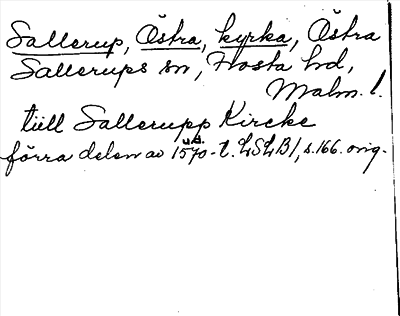 Sallerup, Östra, kyrka, Östra
Sallerups sn, Frosta hd,
Malm. l.
tiill Sallerupp Kircke
u.å.
förra delen av 1570-t. LSLB 1, s. 166. orig.